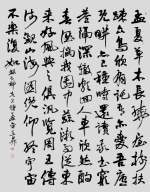 孟夏草木長繞屋樹扶
疎衆鳥欣有託吾亦愛吾廬
既耕亦已種時還讀我書窮
巷隔深轍頗迴故人車歡然酌
春酒摘我園中蔬微雨從東
來好風與之俱汎覽周王傳
流觀山海圖俯仰終宇宙
不樂復何如